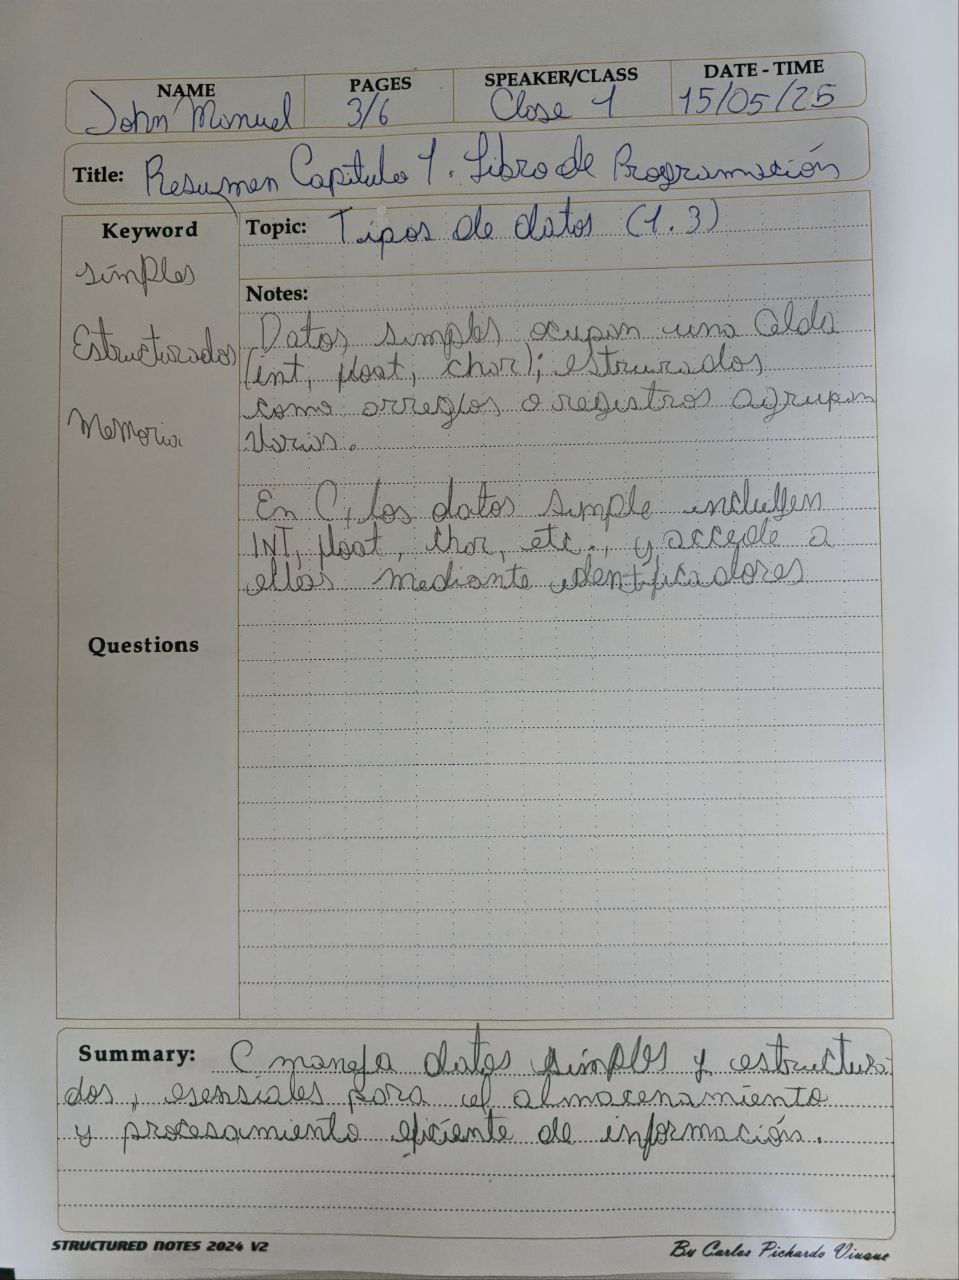 NAME PAGES SPEAKER/CLASS DATE - TIME
John Manuel 3/6 Clase 1 15/05/25
Title: Resumen Capitulo 1. Libro de Programación
Keyword
simples
Estructurados
Memoria
Topic: Tipos de datos (1.3)
Notes:
Datos simples ocupan una Celda
(int, float, char); estrurados
como arreglos o registros agrupan
varias.
En C, los datos simple inclullen
INT, float, char, etc., y accede a
ellos mediante identificadores
Questions
Summary: C maneja datos simples y estructura
dos, esensiales para el almacenamiento
y procesamiento eficiente de información.
STRUCTURED NOTES 2024 V2
By Carlos Pichardo Viuque